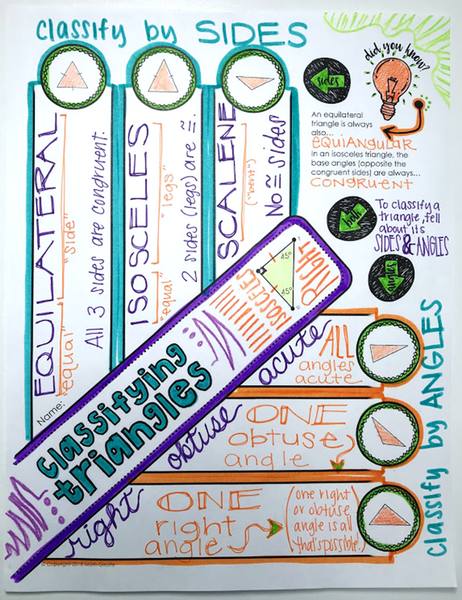 classify by SIDES
EQUILATERAL
"equal" "side"
All 3 sides are congruent.
ISOSCELES
"equal" "legs"
2 sides (legs) are ≅.
SCALENE
No ≅ sides
did you know?
sides
An equilateral
triangle is always
also...
EQUIANGULAR
In an isosceles triangle, the
base angles (opposite the
congruent sides) are always...
CONGRUENT
both
To classify a
triangle, tell
about its
SIDES & ANGLES
angles
Name:
classifying
triangles
ISOSCELES
RIGHT
45°
45°
acute
ALL
angles
acute
obtuse
ONE
obtuse
angle
right
ONE
right
angle
(one right
or obtuse
angle is all
that's possible.)
classify by ANGLES